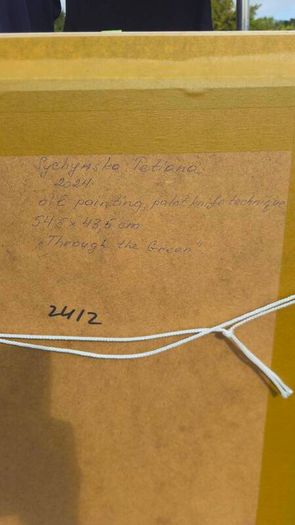 Sychynska Tetiana
2024
oil painting, paletknife technique
54,5 x 43,5 cm
„Through the Green"
2412